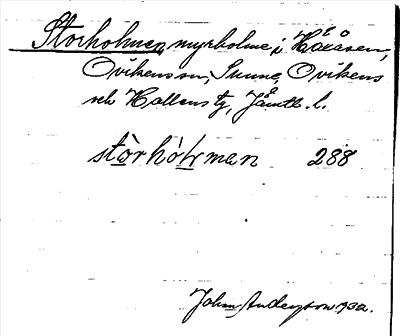 Storholmen, myrholme i Håxåsen,
Ovikensson, Sunne, Ovikens
och Hallens tg, Jämtl. l.
stòrhólmen 288
Johan Anderson 1932.